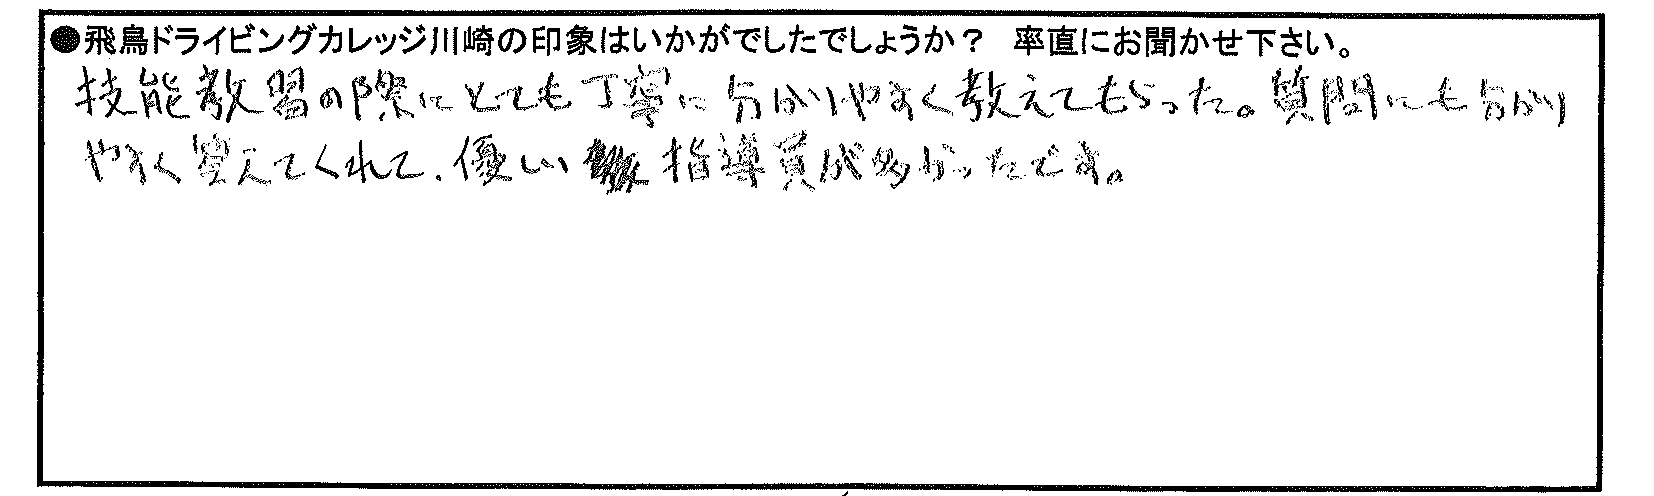 ●飛鳥ドライビングカレッジ川崎の印象はいかがでしたでしょうか？ 率直にお聞かせ下さい。
技能教習の際にとても丁寧に分かりやすく教えてもらった。質問にも分かり
やすく答えてくれて、優しい指導員が多かったです。